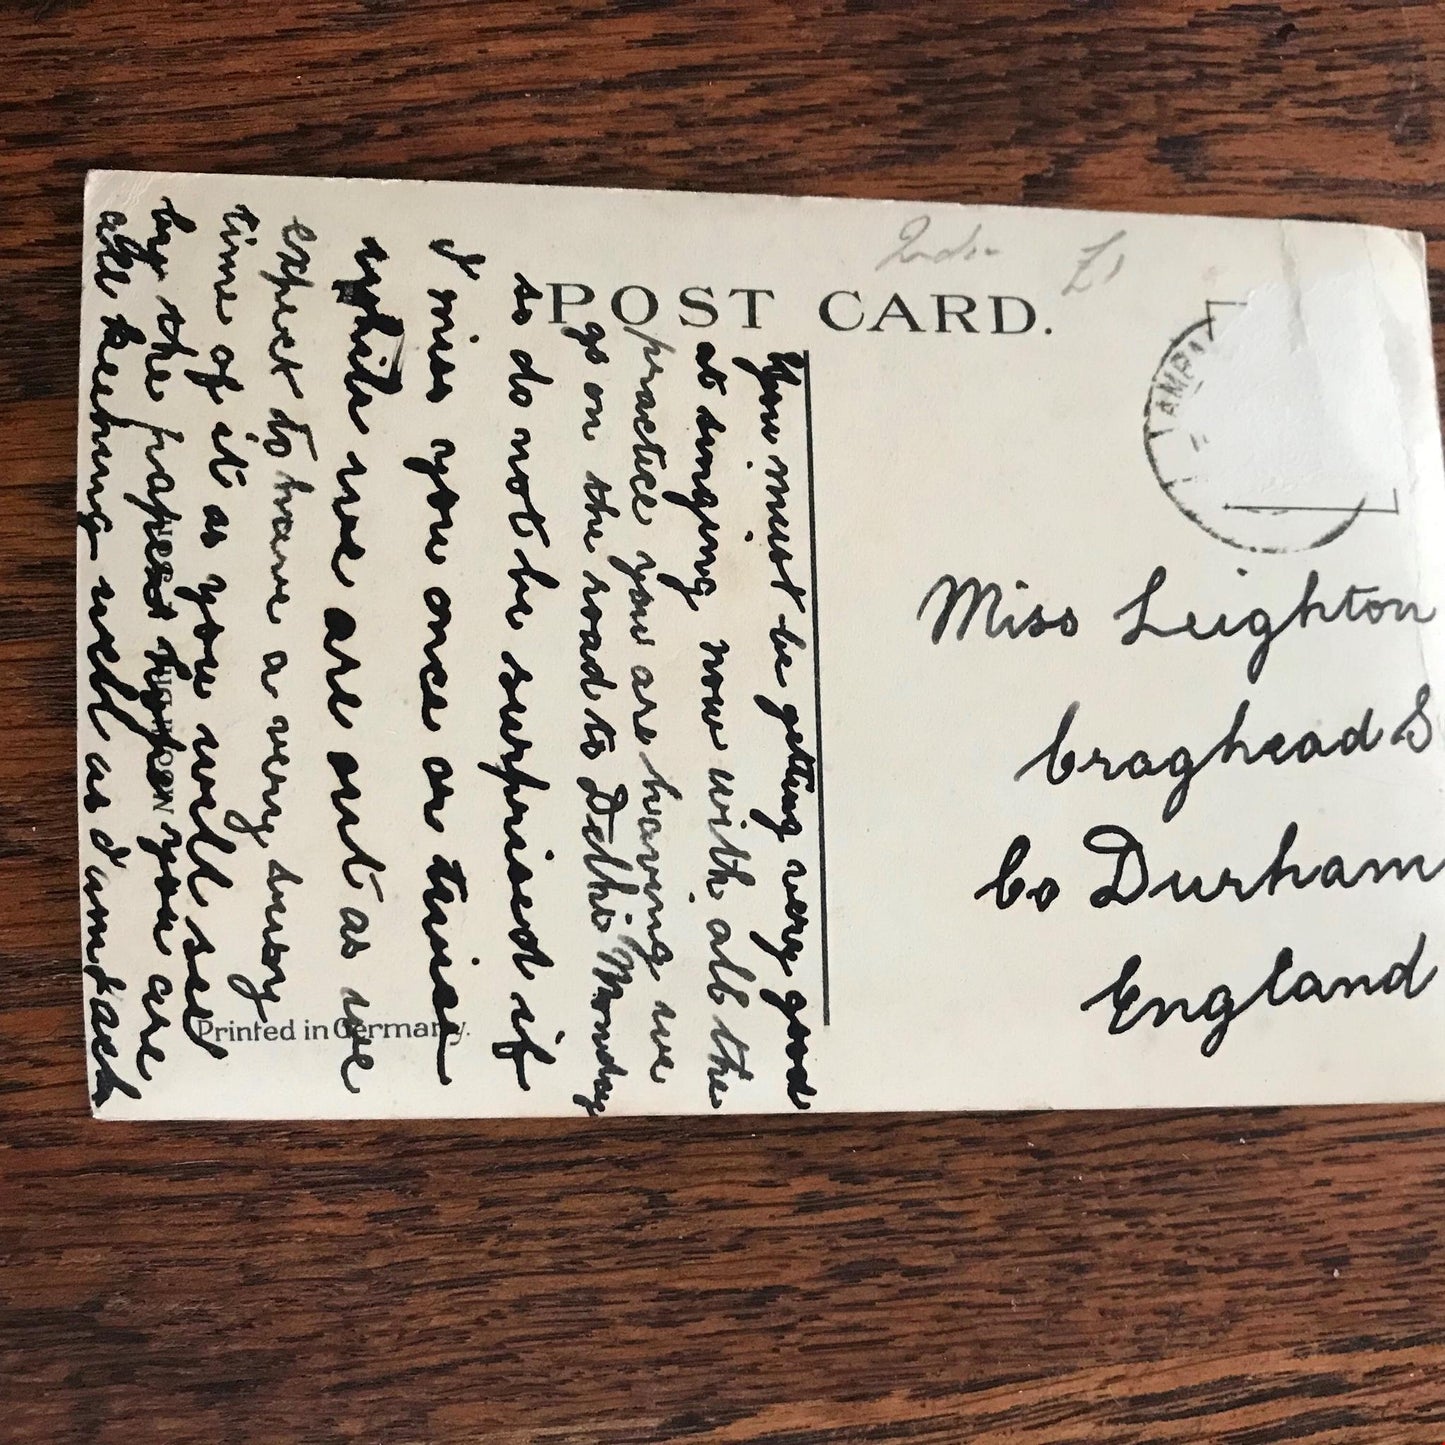 POST CARD.
India
£1
AMBA
Miss Leighton
Craghead S
Co Durham
England
You must be getting very good
at singing now with all the
practice you are having we
go on the road to Delhi Monday
so do not be surprised if
I miss you once or twice
while we are out as we
expect to have a very busy
time of it as you will see
by the papers hope you are
all keeping well as I am
Printed in Germany.